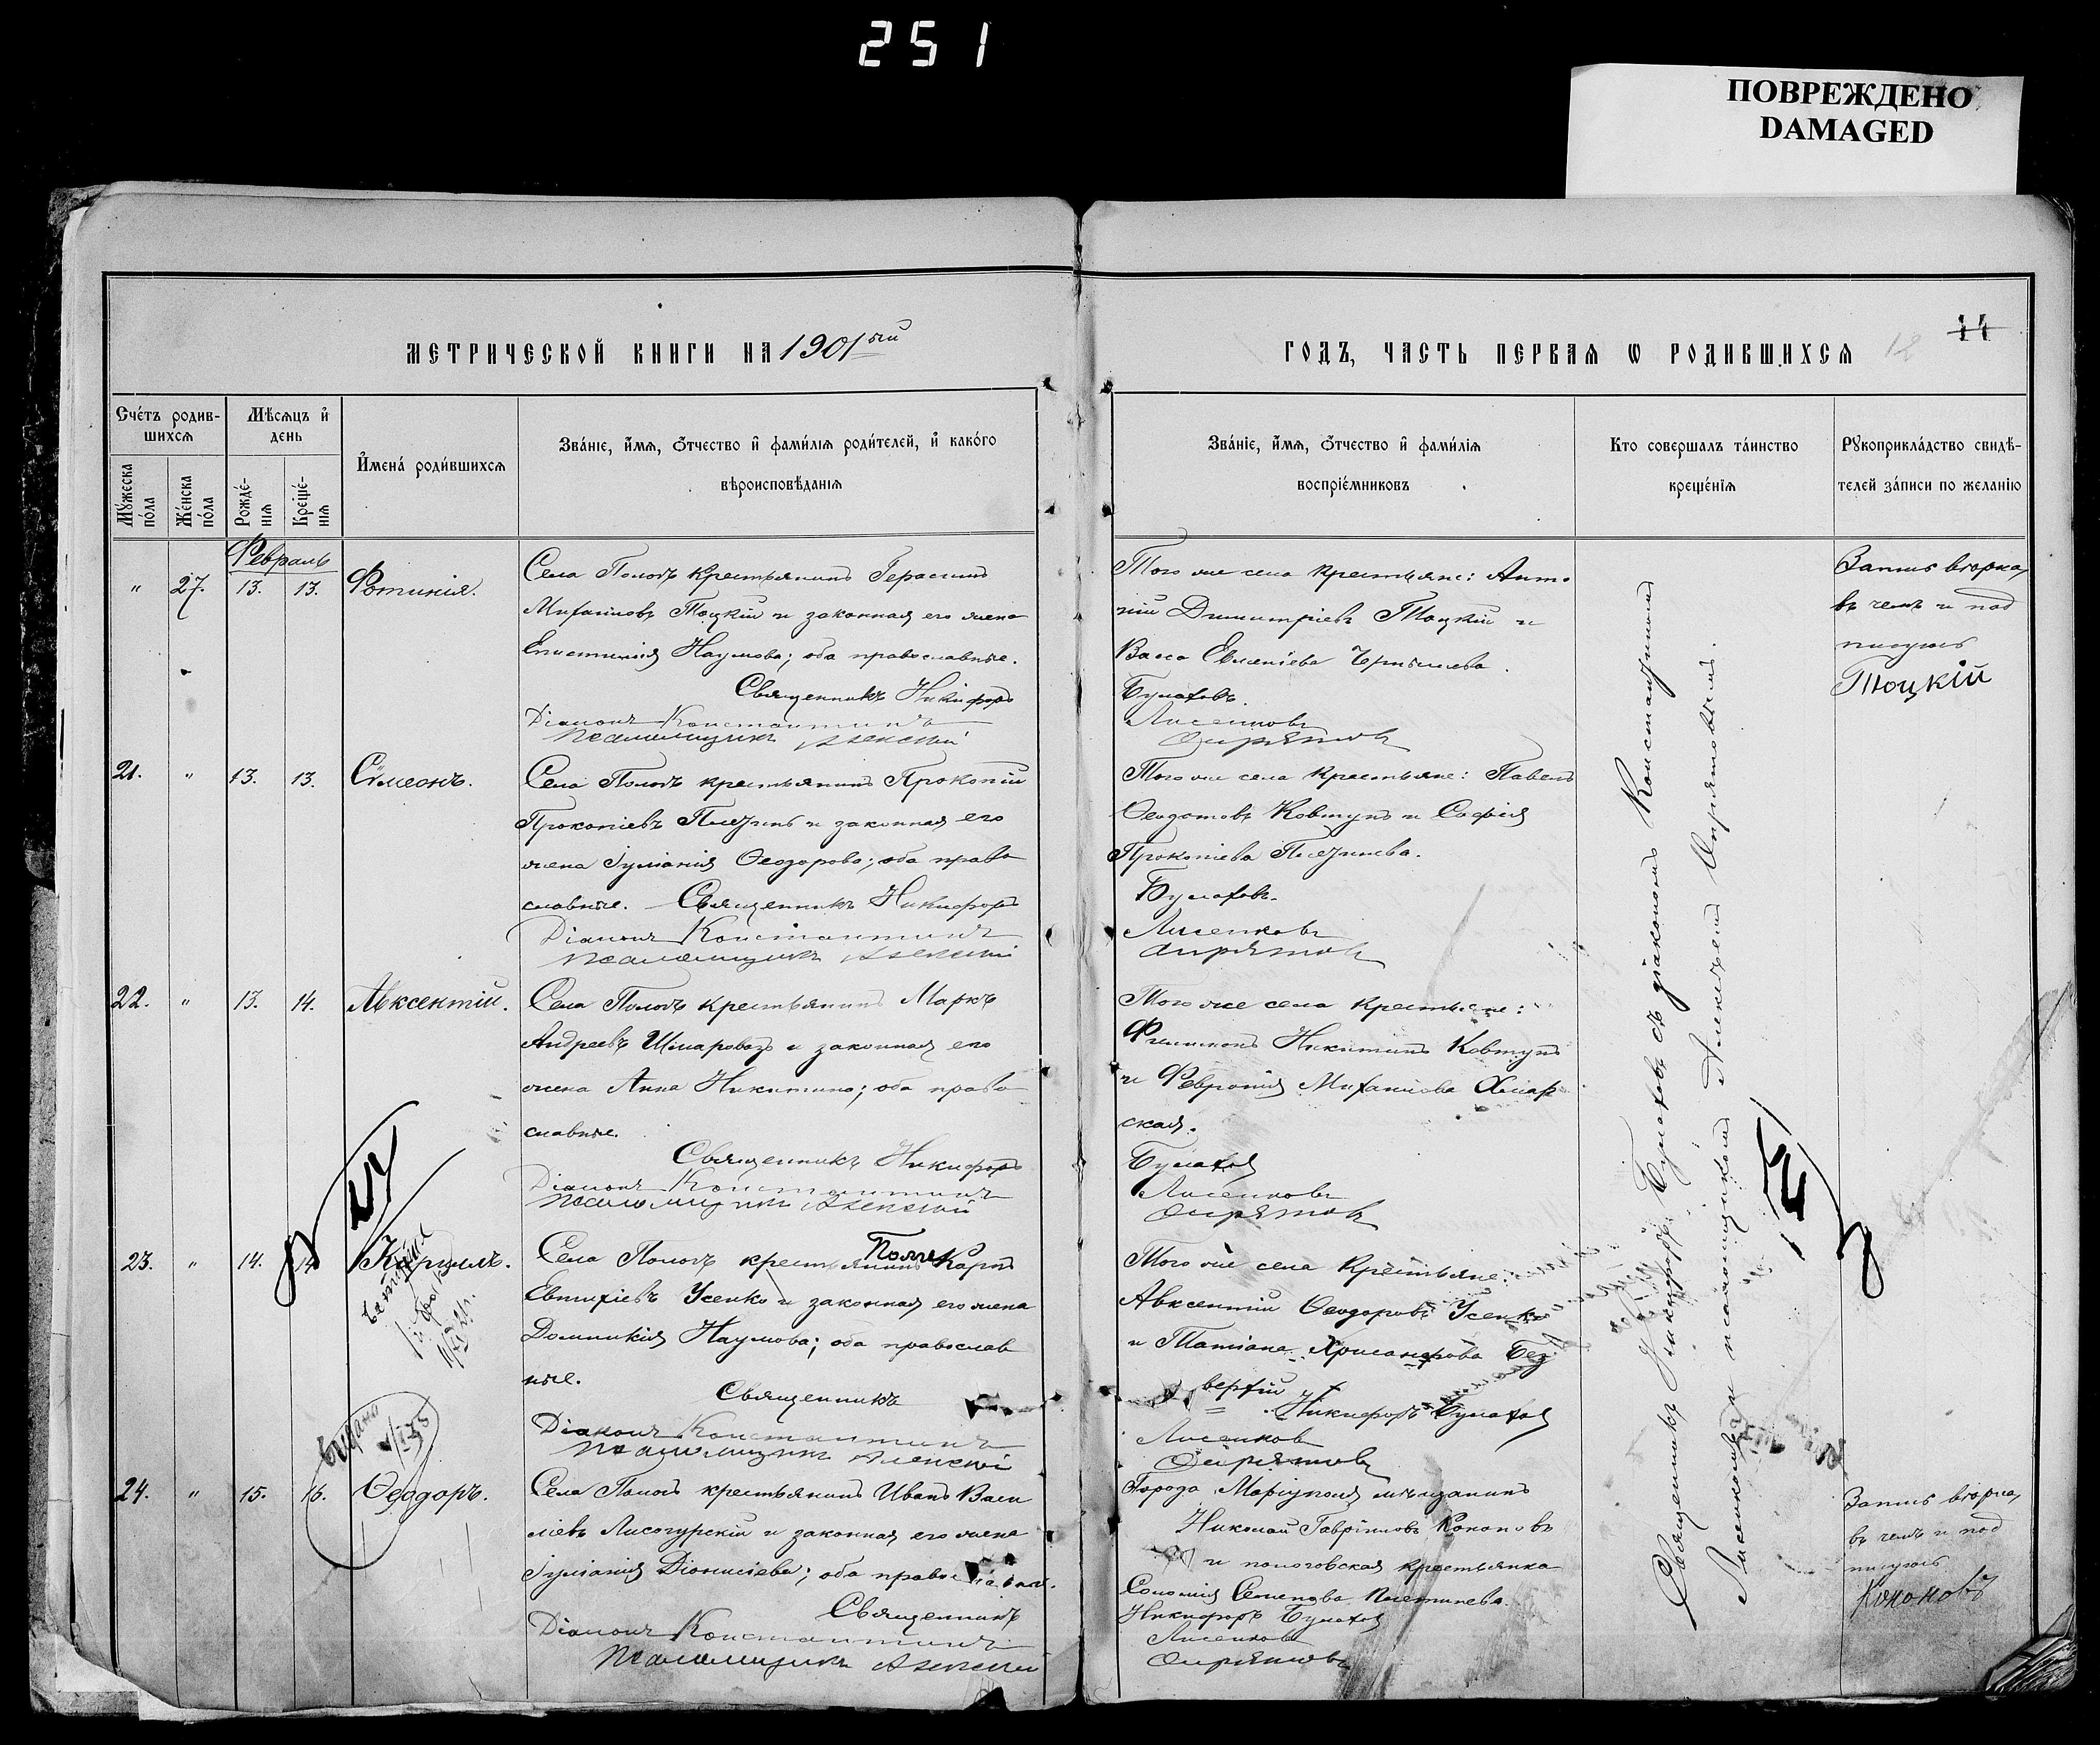 251
ПОВРЕЖДЕНО
DAMAGED
МЕТРИЧЕСКОЙ КНИГИ НА 1901ый
ГОДЪ, ЧАСТЬ ПЕРВАЯ Ѡ РОДИВШИХСЯ
12 14
Счетъ родив-
шихся
Мѣсяцъ и
день
Мужеска
пола
Женска
пола
Рожде-
нія
Креще-
нія
Имена родившихся
Званіе, имя, отчество и фамилія родителей, и какого
вѣроисповѣданія
Званіе, имя, отчество и фамилія
воспріемниковъ
Кто совершалъ таинство
крещенія
Рукоприкладство свидѣ-
телей записи по желанію
Февраль
" 27. 13. 13. Фотинія.
Села Пологъ крестьянинъ Герасимъ
Михаиловъ Тоцкій и законная его жена
Епистимія Наумова; оба православные.
Священникъ Никифоръ
Діаконъ Константинъ
Псаломщикъ Алексѣй
Того же села крестьяне: Анто
ній Димитріевъ Тоцкій и
Васса Евменіева Чернышева.
Булатовъ.
Лисенковъ
Опрятовъ
Запись вѣрна,
въ чемъ и под
писуюсь
Тоцкій
21. " 13. 13. Сѵмеонъ.
Села Пологъ крестьянинъ Прокопій
Прокопіевъ и законная его
жена Іуліанія Ѳеодорова; оба право
славные. Священникъ Никифоръ
Діаконъ Константинъ
Псаломщикъ Алексѣй
Того же села крестьяне: Павелъ
Ѳеодотовъ Ковтунъ и Софія
Прокопіева
Булатовъ.
Лисенковъ
Опрятовъ
22. " 13. 14. Авксентій.
Села Пологъ крестьянинъ Маркъ
Андреевъ и законная его
жена Анна Никитина; оба право
славные.
Священникъ Никифоръ
Діаконъ Константинъ
Псаломщикъ Алексѣй
Того же села крестьяне:
Филимонъ Никитинъ Ковтунъ
и Февронія Михаилова Хмар
ская.
Булатов
Лисенковъ
Опрятовъ
23. " 14. 14 Кириллъ.
Села Пологъ крестьянинъ Карпъ
Евтихіевъ Усенко и законная его жена
Домникія Наумова; оба православ
ные.
Священникъ
Діаконъ Константинъ
Псаломщикъ Алексѣй
Того же села крестьяне:
Авксентій Ѳеодоровъ Усенко
и Татіана Хрисанфова Без
верхій
Никифоръ Булатов
Лисенков
Опрятовъ
Видано
24. " 15. 16. Ѳеодоръ.
Села Пологъ крестьянинъ Иванъ Васи
ліевъ Лисогурскій и законная его жена
Іуліанія Діонисіева; оба православные.
Священникъ
Діаконъ Константинъ
Псаломщикъ Алексѣй
Города Маріуполя мѣщанинъ
Николай Гавріиловъ Кононовъ
и пологовская крестьянка
Соломія Семенова
Никифоръ Булатов
Лисенковъ
Опрятовъ
Запись вѣрна,
въ чемъ и под
писуюсь
Кононовъ
Священникъ Никифоръ Булатовъ съ діакономъ Константиномъ
Лисенковымъ и псаломщикомъ Алексѣемъ Опрятовымъ.